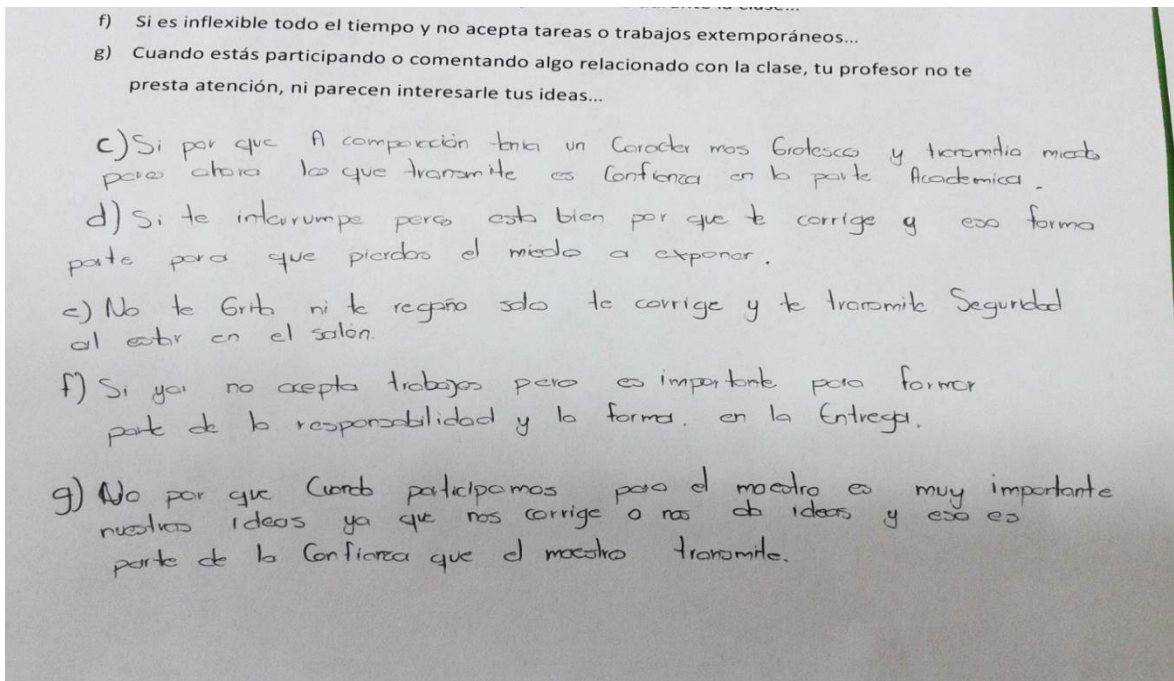 f) Si es inflexible todo el tiempo y no acepta tareas o trabajos extemporáneos...
g) Cuando estás participando o comentando algo relacionado con la clase, tu profesor no te
presta atención, ni parecen interesarle tus ideas...
c) Si por que A comparación tenia un Caracter mas Grotesco y miedo
pero ahora lo que transmite es Confianza en la parte Academica.
d) Si te interrumpe pero esta bien por que te corrige y eso forma
parte para que pierdas el miedo a exponer.
e) No te Grita ni te regaña solo te corrige y te transmite Seguridad
al estar en el salón.
f) Si ya no acepta trabajos pero es importante para formar
parte de la responsabilidad y la forma. en la Entrega.
g) No por que Cuando participamos para el maestro es muy importante
nuestras ideas ya que nos corrige o nos da ideas y eso es
parte de la Confianza que el maestro transmite.